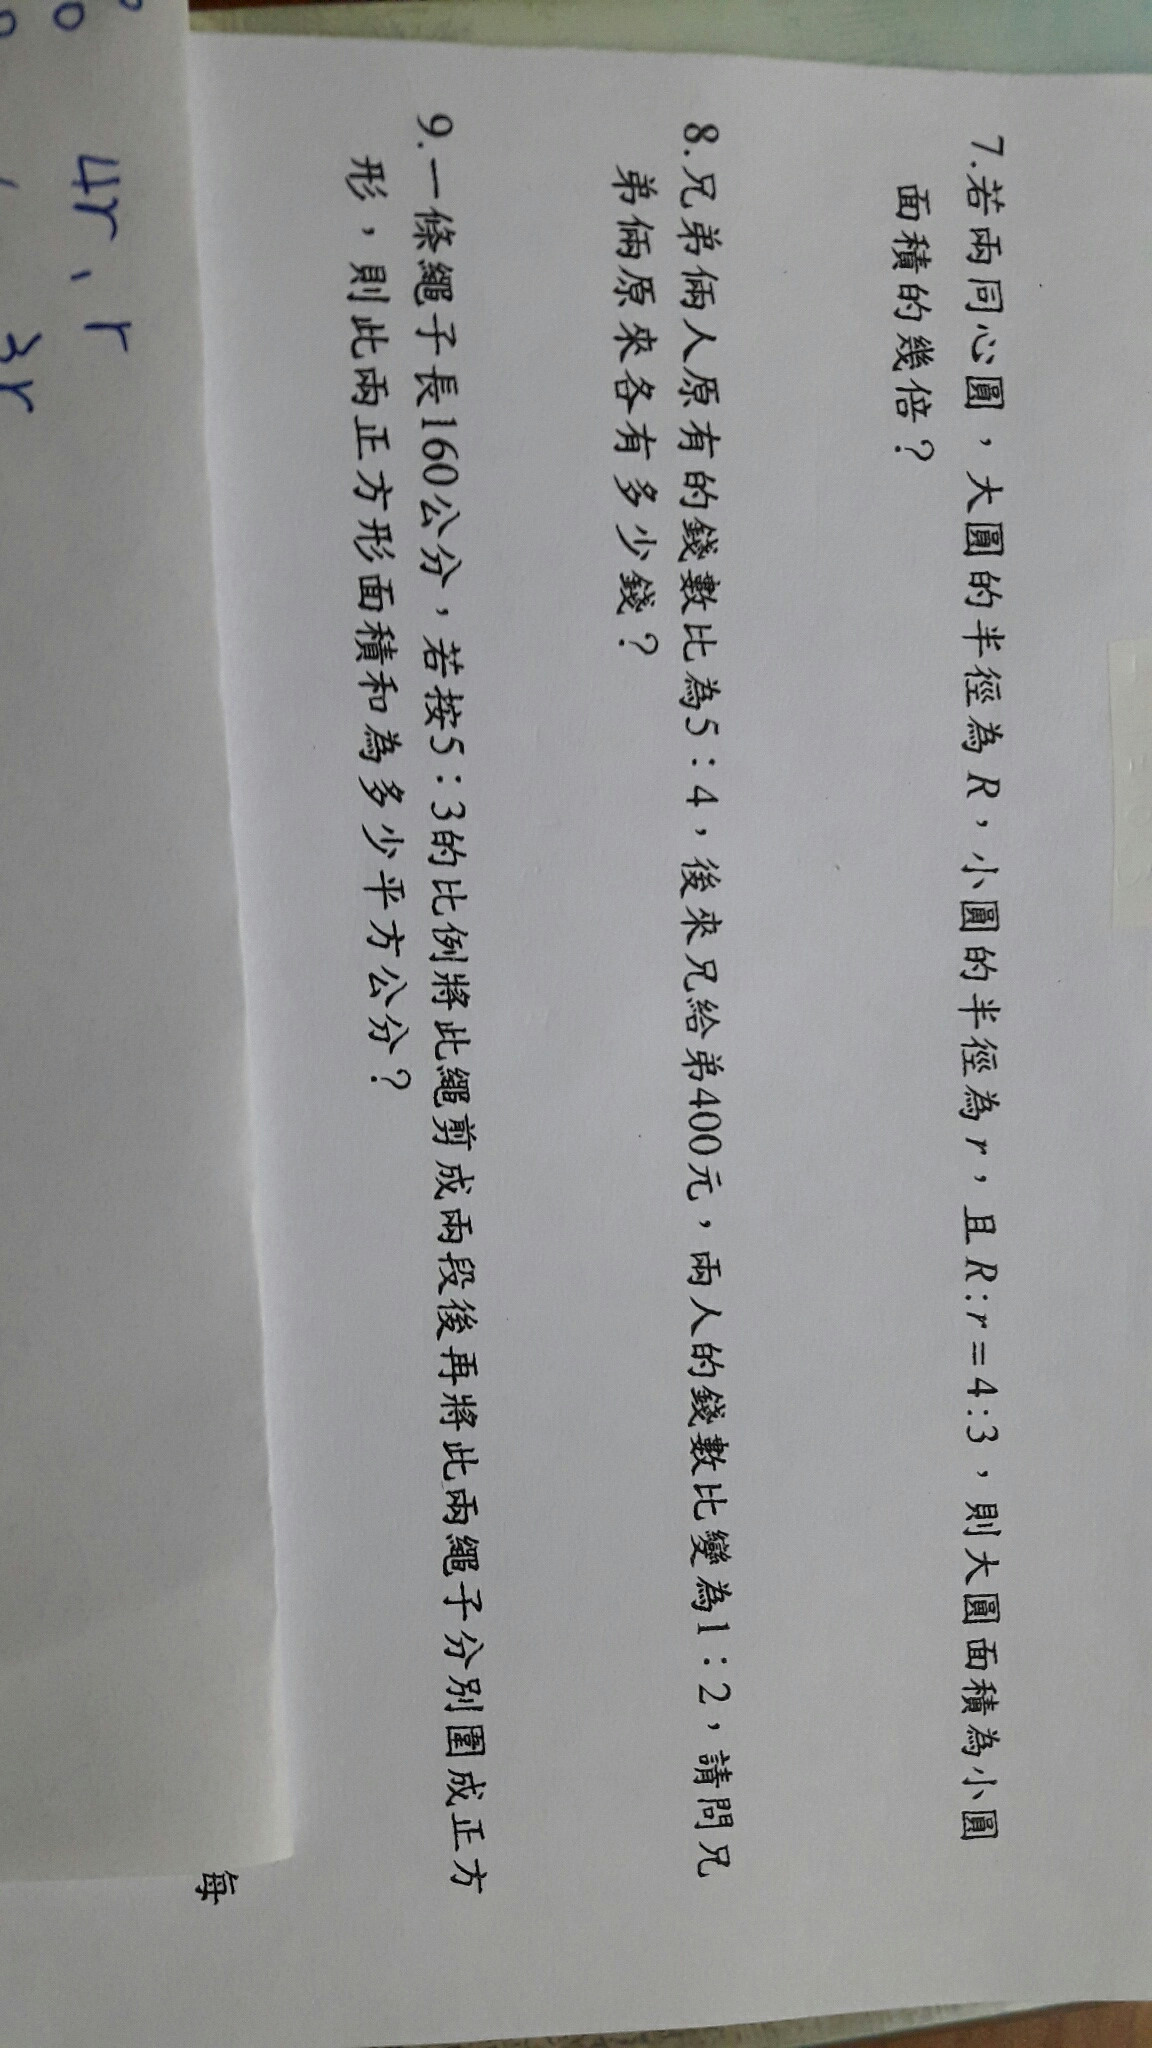 7.若兩同心圓，大圓的半徑為R，小圓的半徑為r，且R:r=4:3，則大圓面積為小圓
面積的幾倍？
8.兄弟倆人原有的錢數比為5：4，後來兄給弟400元，兩人的錢數比變為1：2，請問兄
弟倆原來各有多少錢？
9.一條繩子長160公分，若按5：3的比例將此繩剪成兩段後再將此兩繩子分別圍成正方
形，則此兩正方形面積和為多少平方公分？
每
4r、r
3r